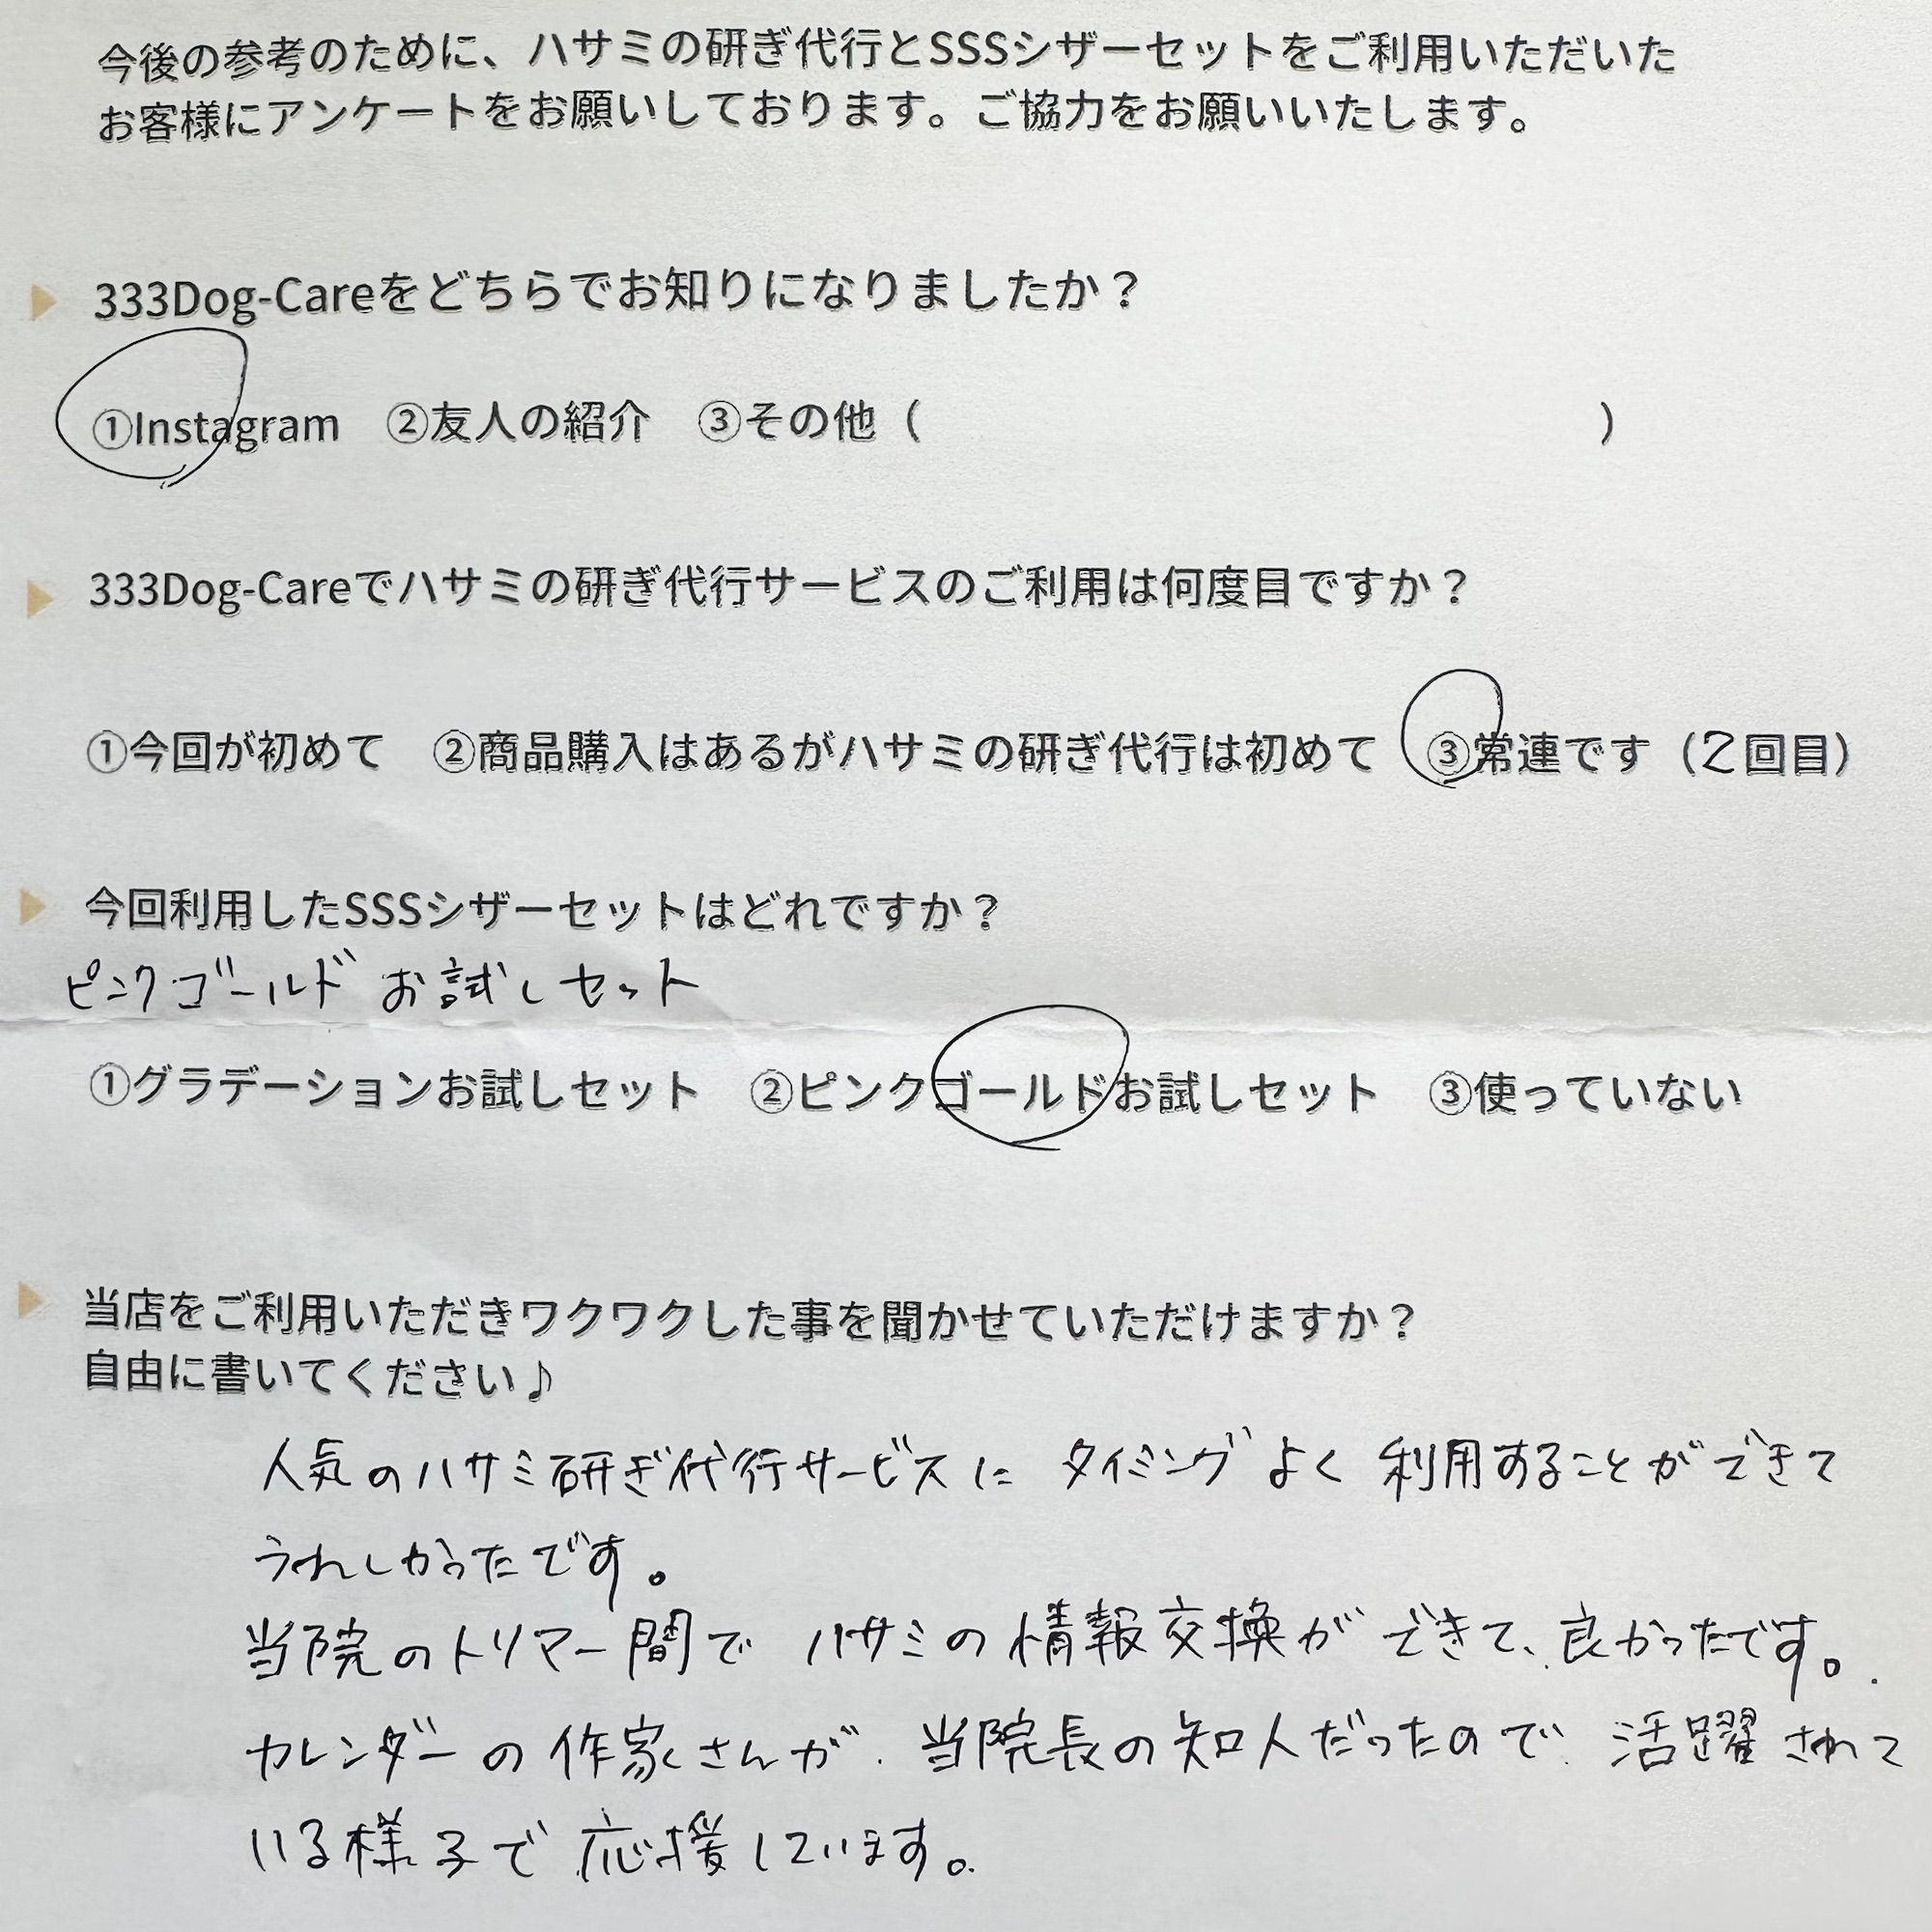 今後の参考のために、ハサミの研ぎ代行とSSSシザーセットをご利用いただいた
お客様にアンケートをお願いしております。ご協力をお願いいたします。
333Dog-Careをどちらでお知りになりましたか？
①Instagram ②友人の紹介 ③その他（ ）
333Dog-Careでハサミの研ぎ代行サービスのご利用は何度目ですか？
①今回が初めて ②商品購入はあるがハサミの研ぎ代行は初めて ③常連です（2回目）
今回利用したSSSシザーセットはどれですか？
ピンクゴールド お試しセット
①グラデーションお試しセット ②ピンクゴールドお試しセット ③使っていない
当店をご利用いただきワクワクした事を聞かせていただけますか？
自由に書いてください♪
人気のハサミ研ぎ代行サービスに タイミングよく 利用することができて
うれしかったです。
当院のトリマー間で ハサミの情報交換ができて、良かったです。
カレンダーの作家さんが、当院長の知人だったので、活躍されて
いる様子で 応援しています。